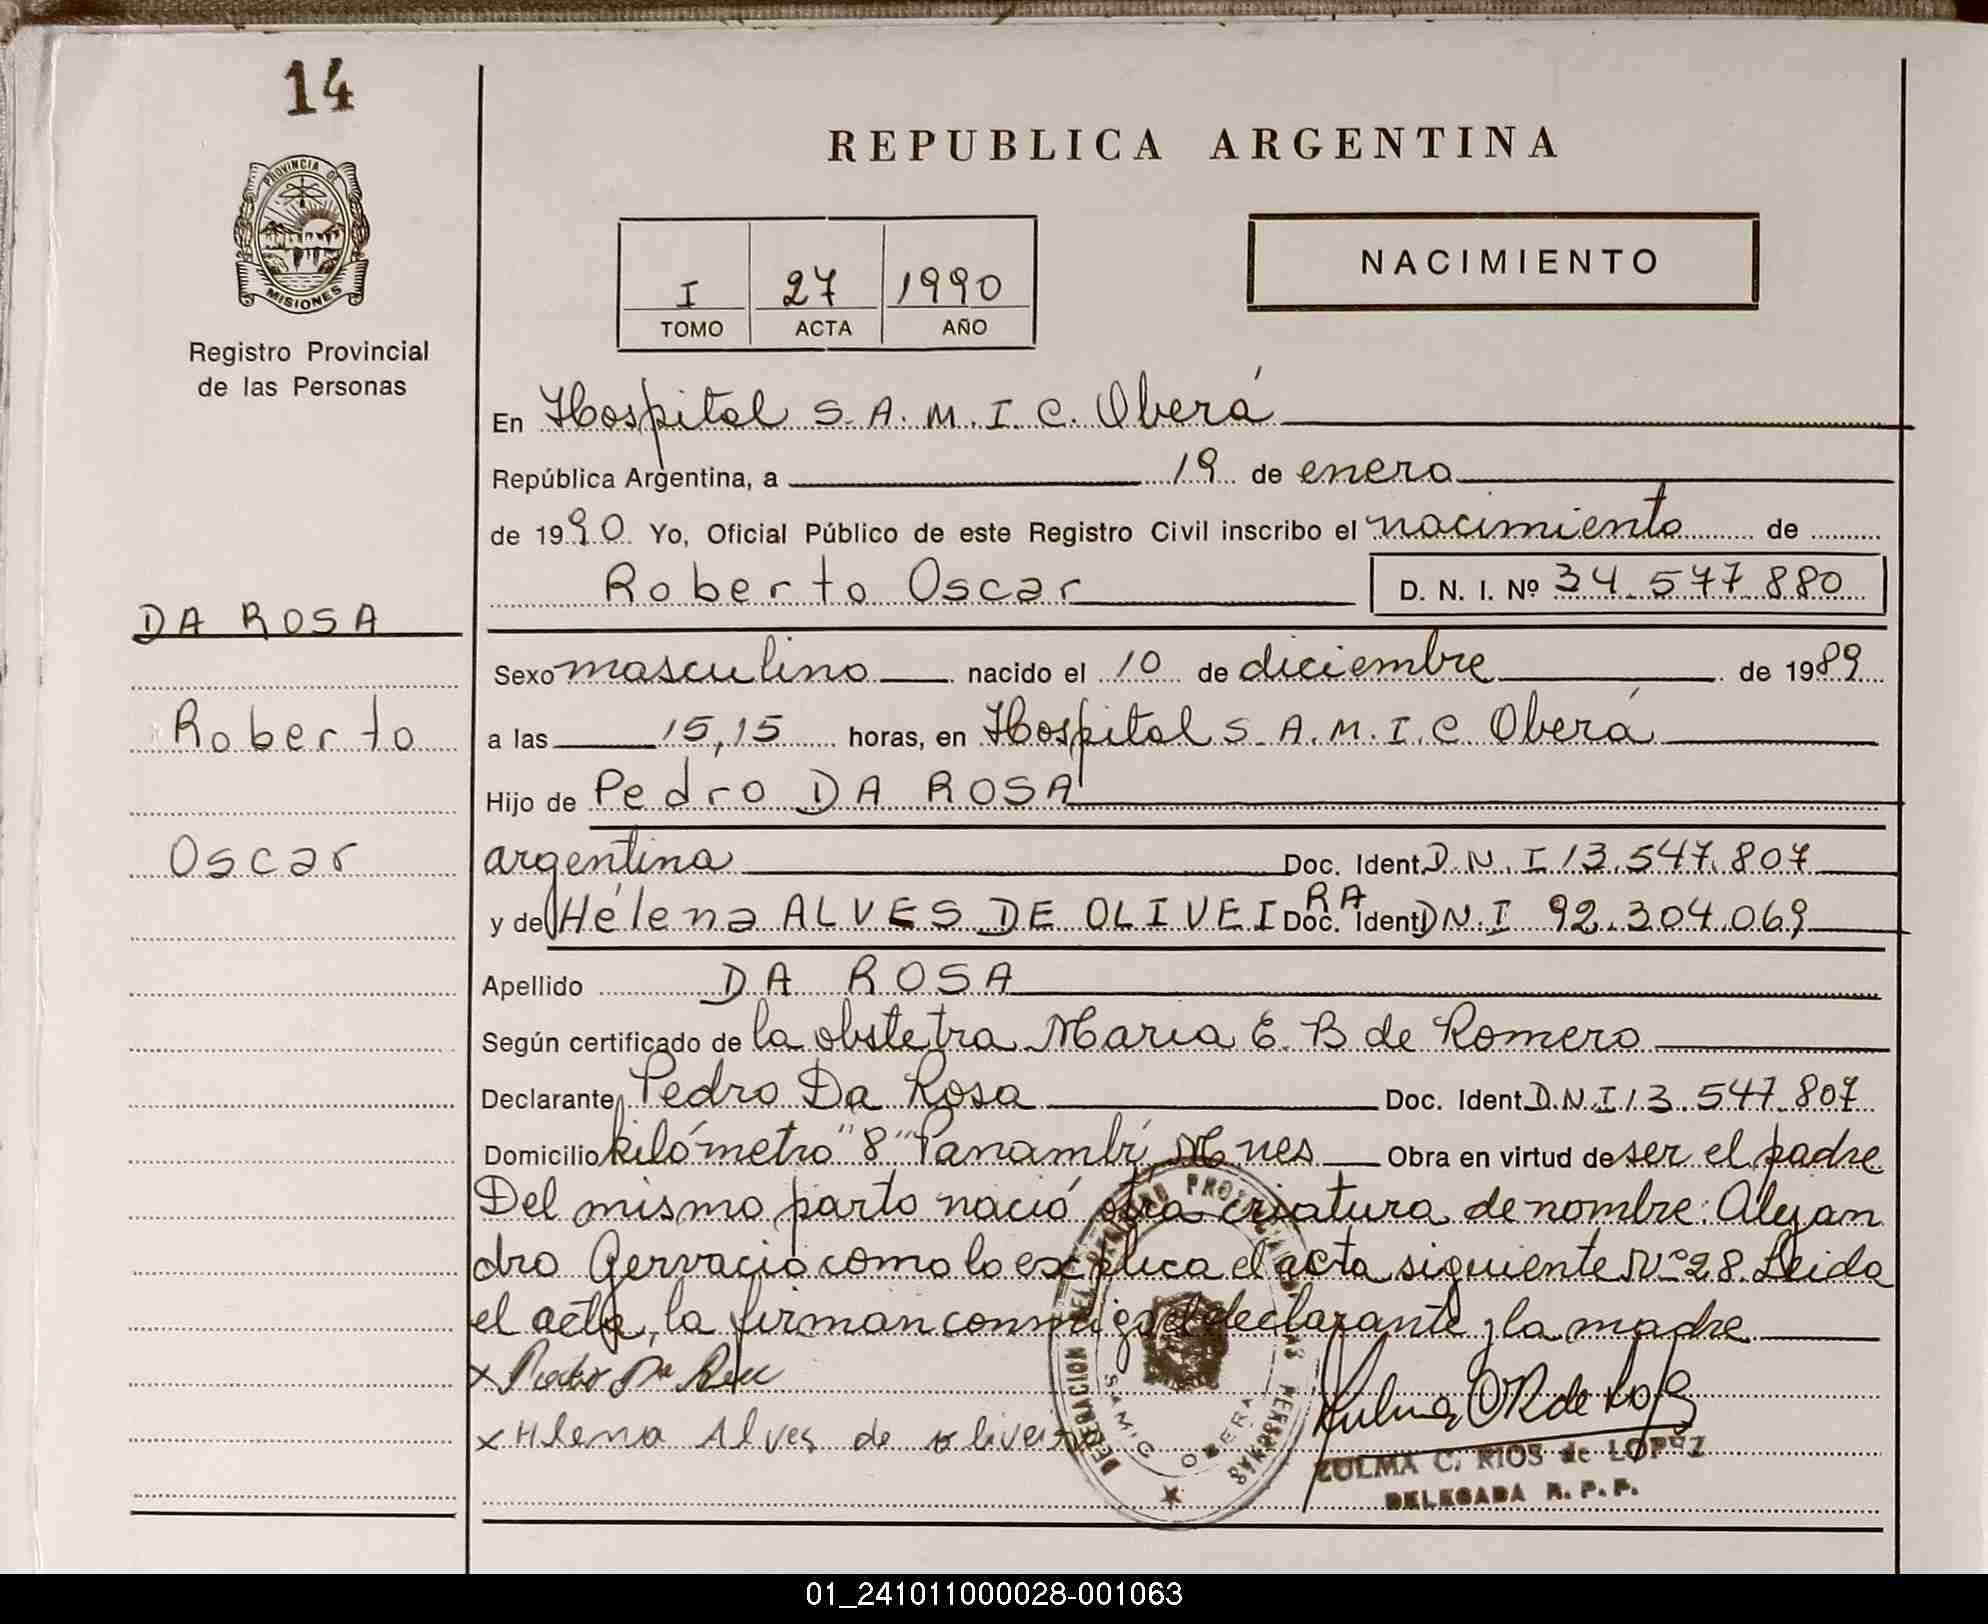 14
REPUBLICA ARGENTINA
PROVINCIA DE
MISIONES
Registro Provincial
de las Personas
I 27 1990
TOMO ACTA AÑO
NACIMIENTO
En Hospital S.A.M.I.C. Oberá
República Argentina, a 19 de enero
de 1990 Yo, Oficial Público de este Registro Civil inscribo el nacimiento de
Roberto Oscar D. N. I. Nº 34.577.880
DA ROSA
Roberto
Oscar
Sexo masculino nacido el 10 de diciembre de 1989
a las 15,15 horas, en Hospital S.A.M.I.C Oberá
Hijo de Pedro DA ROSA
argentina Doc. Ident. D.N.I 13.547.807
y de Hélena ALVES DE OLIVEIRA Doc. Ident. D.N.I 92.304.069
Apellido DA ROSA
Según certificado de la obstetra Maria E. B de Romero
Declarante Pedro Da Rosa Doc. Ident. D.N.I 13.547.807
Domicilio kilómetro "8" Panambí Mnes Obra en virtud de ser el padre
Del mismo parto nació otra criatura de nombre: Alejan
dro Gervacio como lo explica el acta siguiente Nº 28. Leida
el acta, la firman conmigo el declarante y la madre
x Pedro Da
x Hlena Alves de oliveira
DELEGACION DEL REGISTRO PROVINCIAL DE LAS PERSONAS
SAMIC OBERA
ZULMA C. RIOS de LOPEZ
DELEGADA R. P. P.
01_241011000028-001063